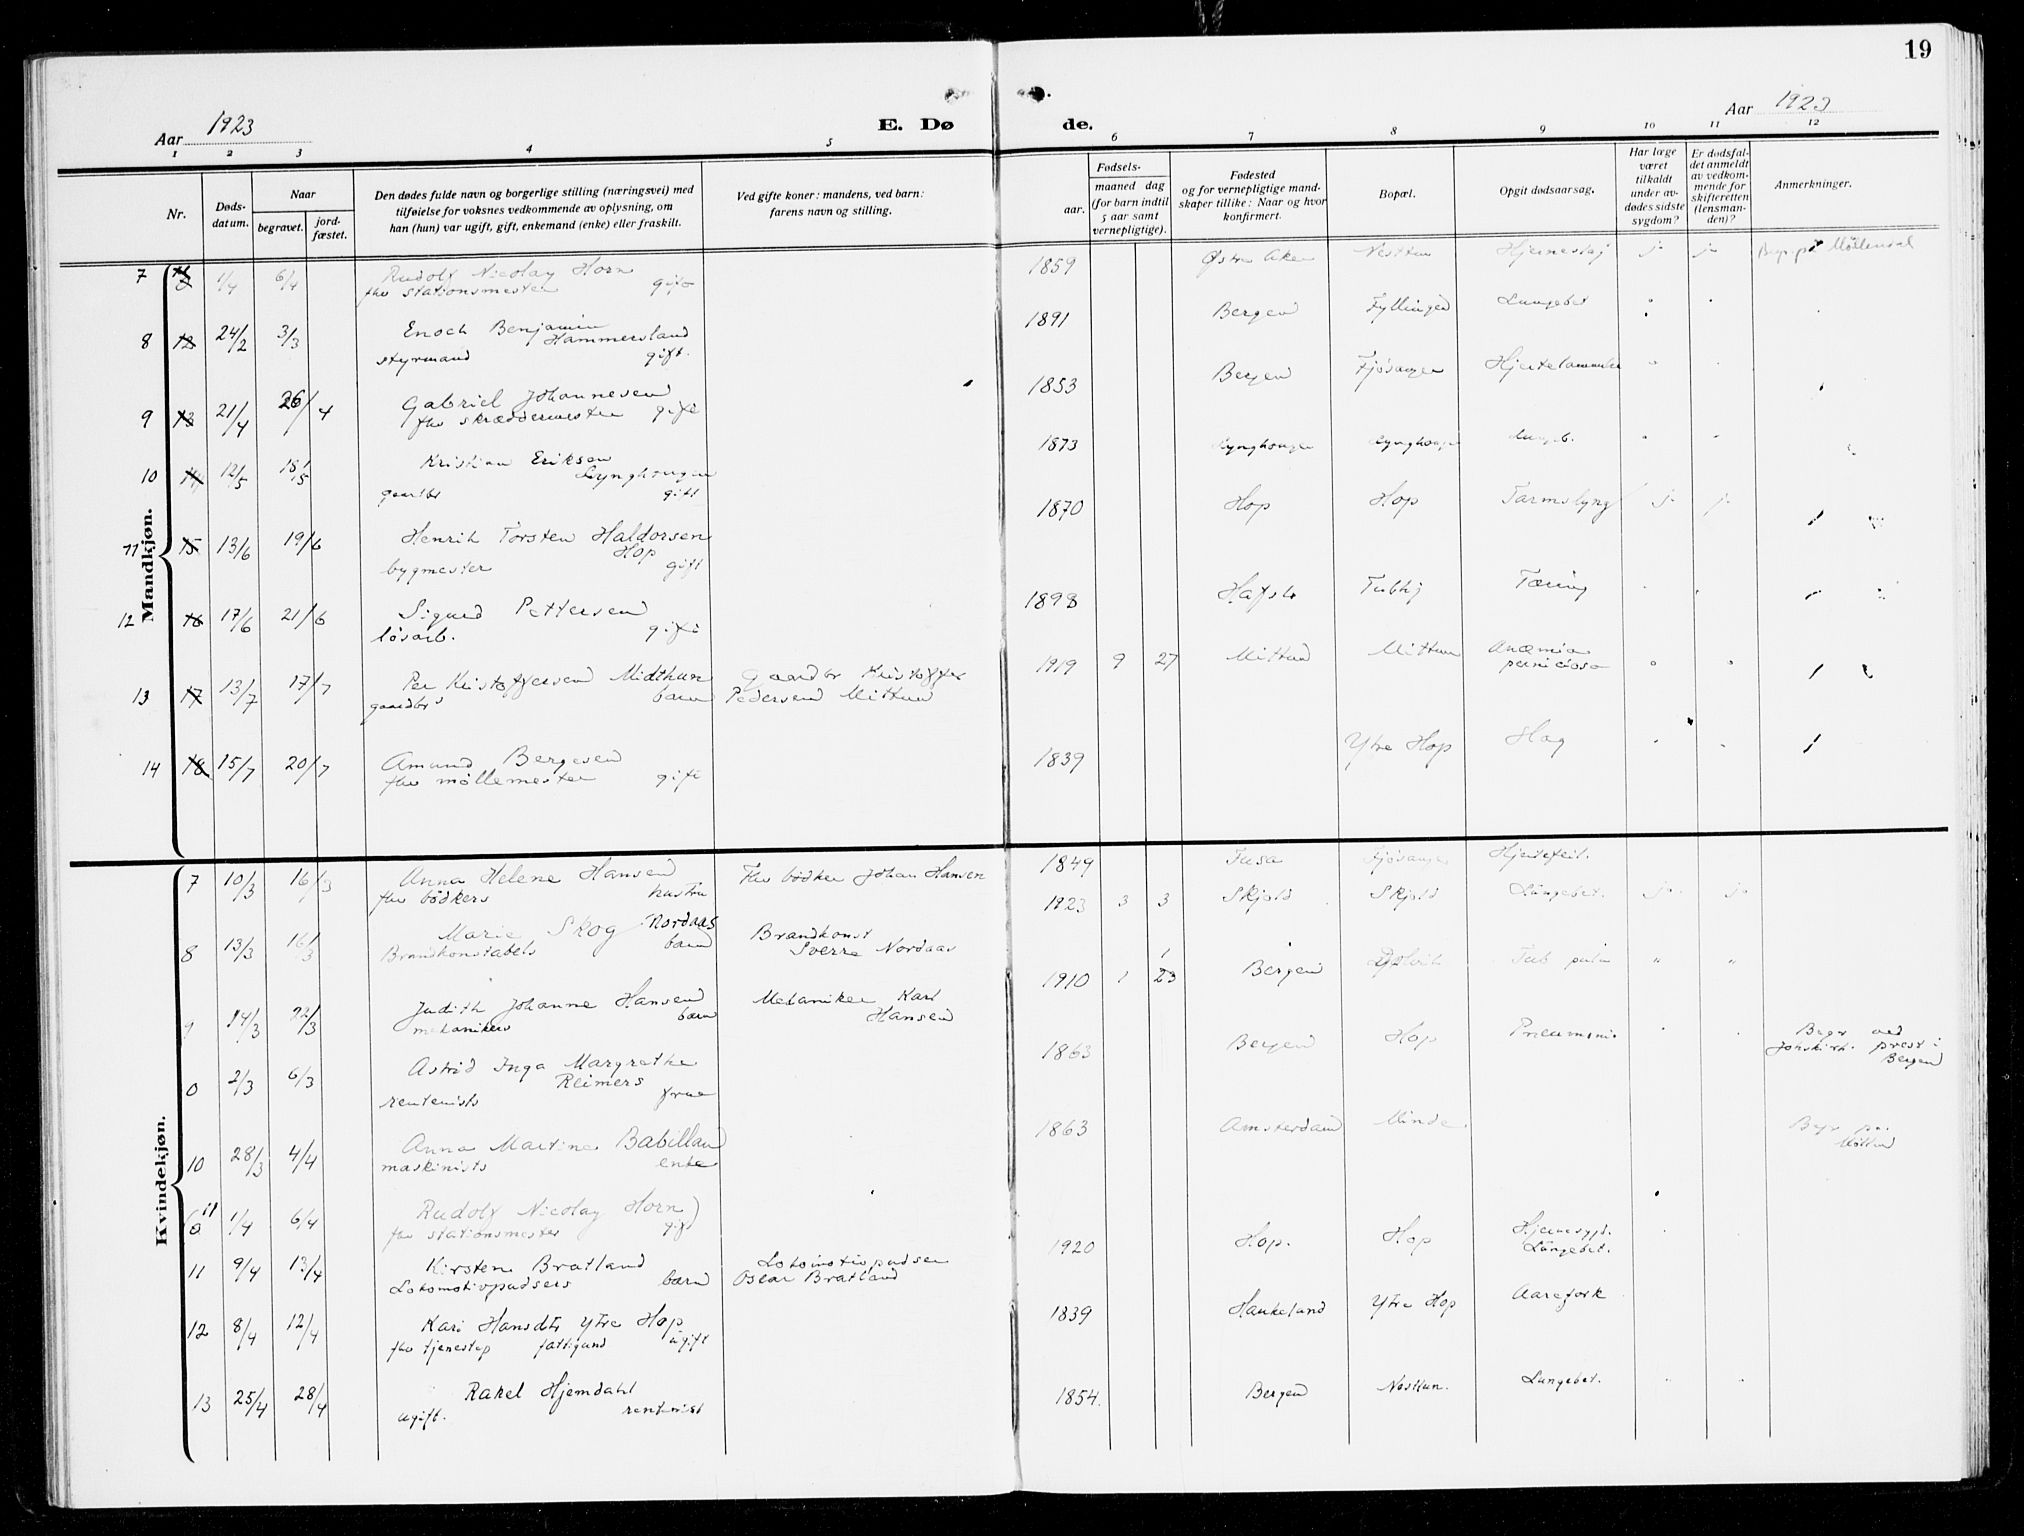 19
Aar 1923
E. Dø de.
Aar 1923
1 2 3 4 5 6 7 8 9 10 11 12
Nr.
Døds-
datum.
Naar
begravet.
jord-
fæstet.
Den dødes fulde navn og borgerlige stilling (næringsvei) med
tilføielse for voksnes vedkommende av oplysning, om
han (hun) var ugift, gift, enkemand (enke) eller fraskilt.
Ved gifte koner: mandens, ved barn:
farens navn og stilling.
Fødsels-
aar.
maaned dag
(for barn indtil
5 aar samt
vernepligtige).
Fødested
og for vernepligtige mand-
skaper tillike: Naar og hvor
konfirmert.
Bopæl.
Opgit dødsaarsag.
Har læge
været
tilkaldt
under av-
dødes sidste
sygdom?
Er dødsfal-
det anmeldt
av vedkom-
mende for
skifteretten
(lensman-
den)?
Anmerkninger.
Mandkjøn.
7 1/4 6/4 Rudolf Nicolay Horn 1859 Østre Aker Nesttun Hjerneslag ja ja Begr. på Møllendal
fhv stationsmester gift
8 12 24/2 3/3 Enoch Benjamin 1891 Bergen Fyllingen Lungebet " "
Hammersland
styrmand gift.
9 13 21/4 26/4 Gabriel Johannesen 1853 Bergen Fjøsanger Hjertelammelse "
fhv skræddermester gift
10 14 12/5 18/5 Kristian Eriksen 1873 Lynghaugen Lynghaugen Lungeb. " "
Lynghaugen
gaardbr gift
11 15 13/6 19/6 Henrik Torsten Haldorsen 1870 Hop Hop Tarmslyng j. j.
Hop
bygmester gift
12 16 17/6 21/6 Sigurd Pettersen 1898 Hafslo Tæring
løsarb. gift
13 17 13/7 17/7 Per Kristoffersen Midthun Gaardbr Kristoffer 1919 9 27 Mittun Mittun Anæmia
gaardbrs barn Pedersen Mittun perniciosa " "
14 18 15/7 20/7 Amund Bergesen 1839 Ytre Hop Slag " "
fhv møllemester gift
Kvindekjøn.
7 10/3 16/3 Anna Helene Hansen Fhv bødker Johan Hansen 1849 Fusa Fjøsanger Hjertefeil.
fhv bødkers hustru
8 13/3 16/3 Marie Skog Nordaas Brandkonst 1923 3 3 Skjold Skjold Lungebet. ja ja
Brandkonstabels barn Sverre Nordaas
9 14/3 22/3 Judith Johanne Hansen Mekaniker Karl 1910 1 23 Bergen Tub " "
mekanikers barn Hansen
0 2/3 6/3 Astrid Inga Margrethe 1863 Bergen Hop Pneumoni. Begr ved
Reimers Jonskirk. prest i
rentenists frue Bergen
10 28/3 4/4 Anna Martine Babilland 1863 Amsterdam Minde Begr på
maskinists enke
11 0 1/4 6/4 Rudolf Nicolay Horn)
fhv stationsmester gift
11 9/4 13/4 Kirsten Bratland Lokomotivpudser 1920 Hop. Hop Hjernesygd.
Lokomotivpudsers barn Oscar Bratland Lungebet.
12 8/4 12/4 Kari Hansdtr Ytre Hop 1839 Haukeland Ytre Hop Aarefork
fhv tjenestep fattigund ugift
13 25/4 28/4 Rakel Hjemdahl 1854. Bergen Nesttun. Lungebet. " "
ugift. rentenist